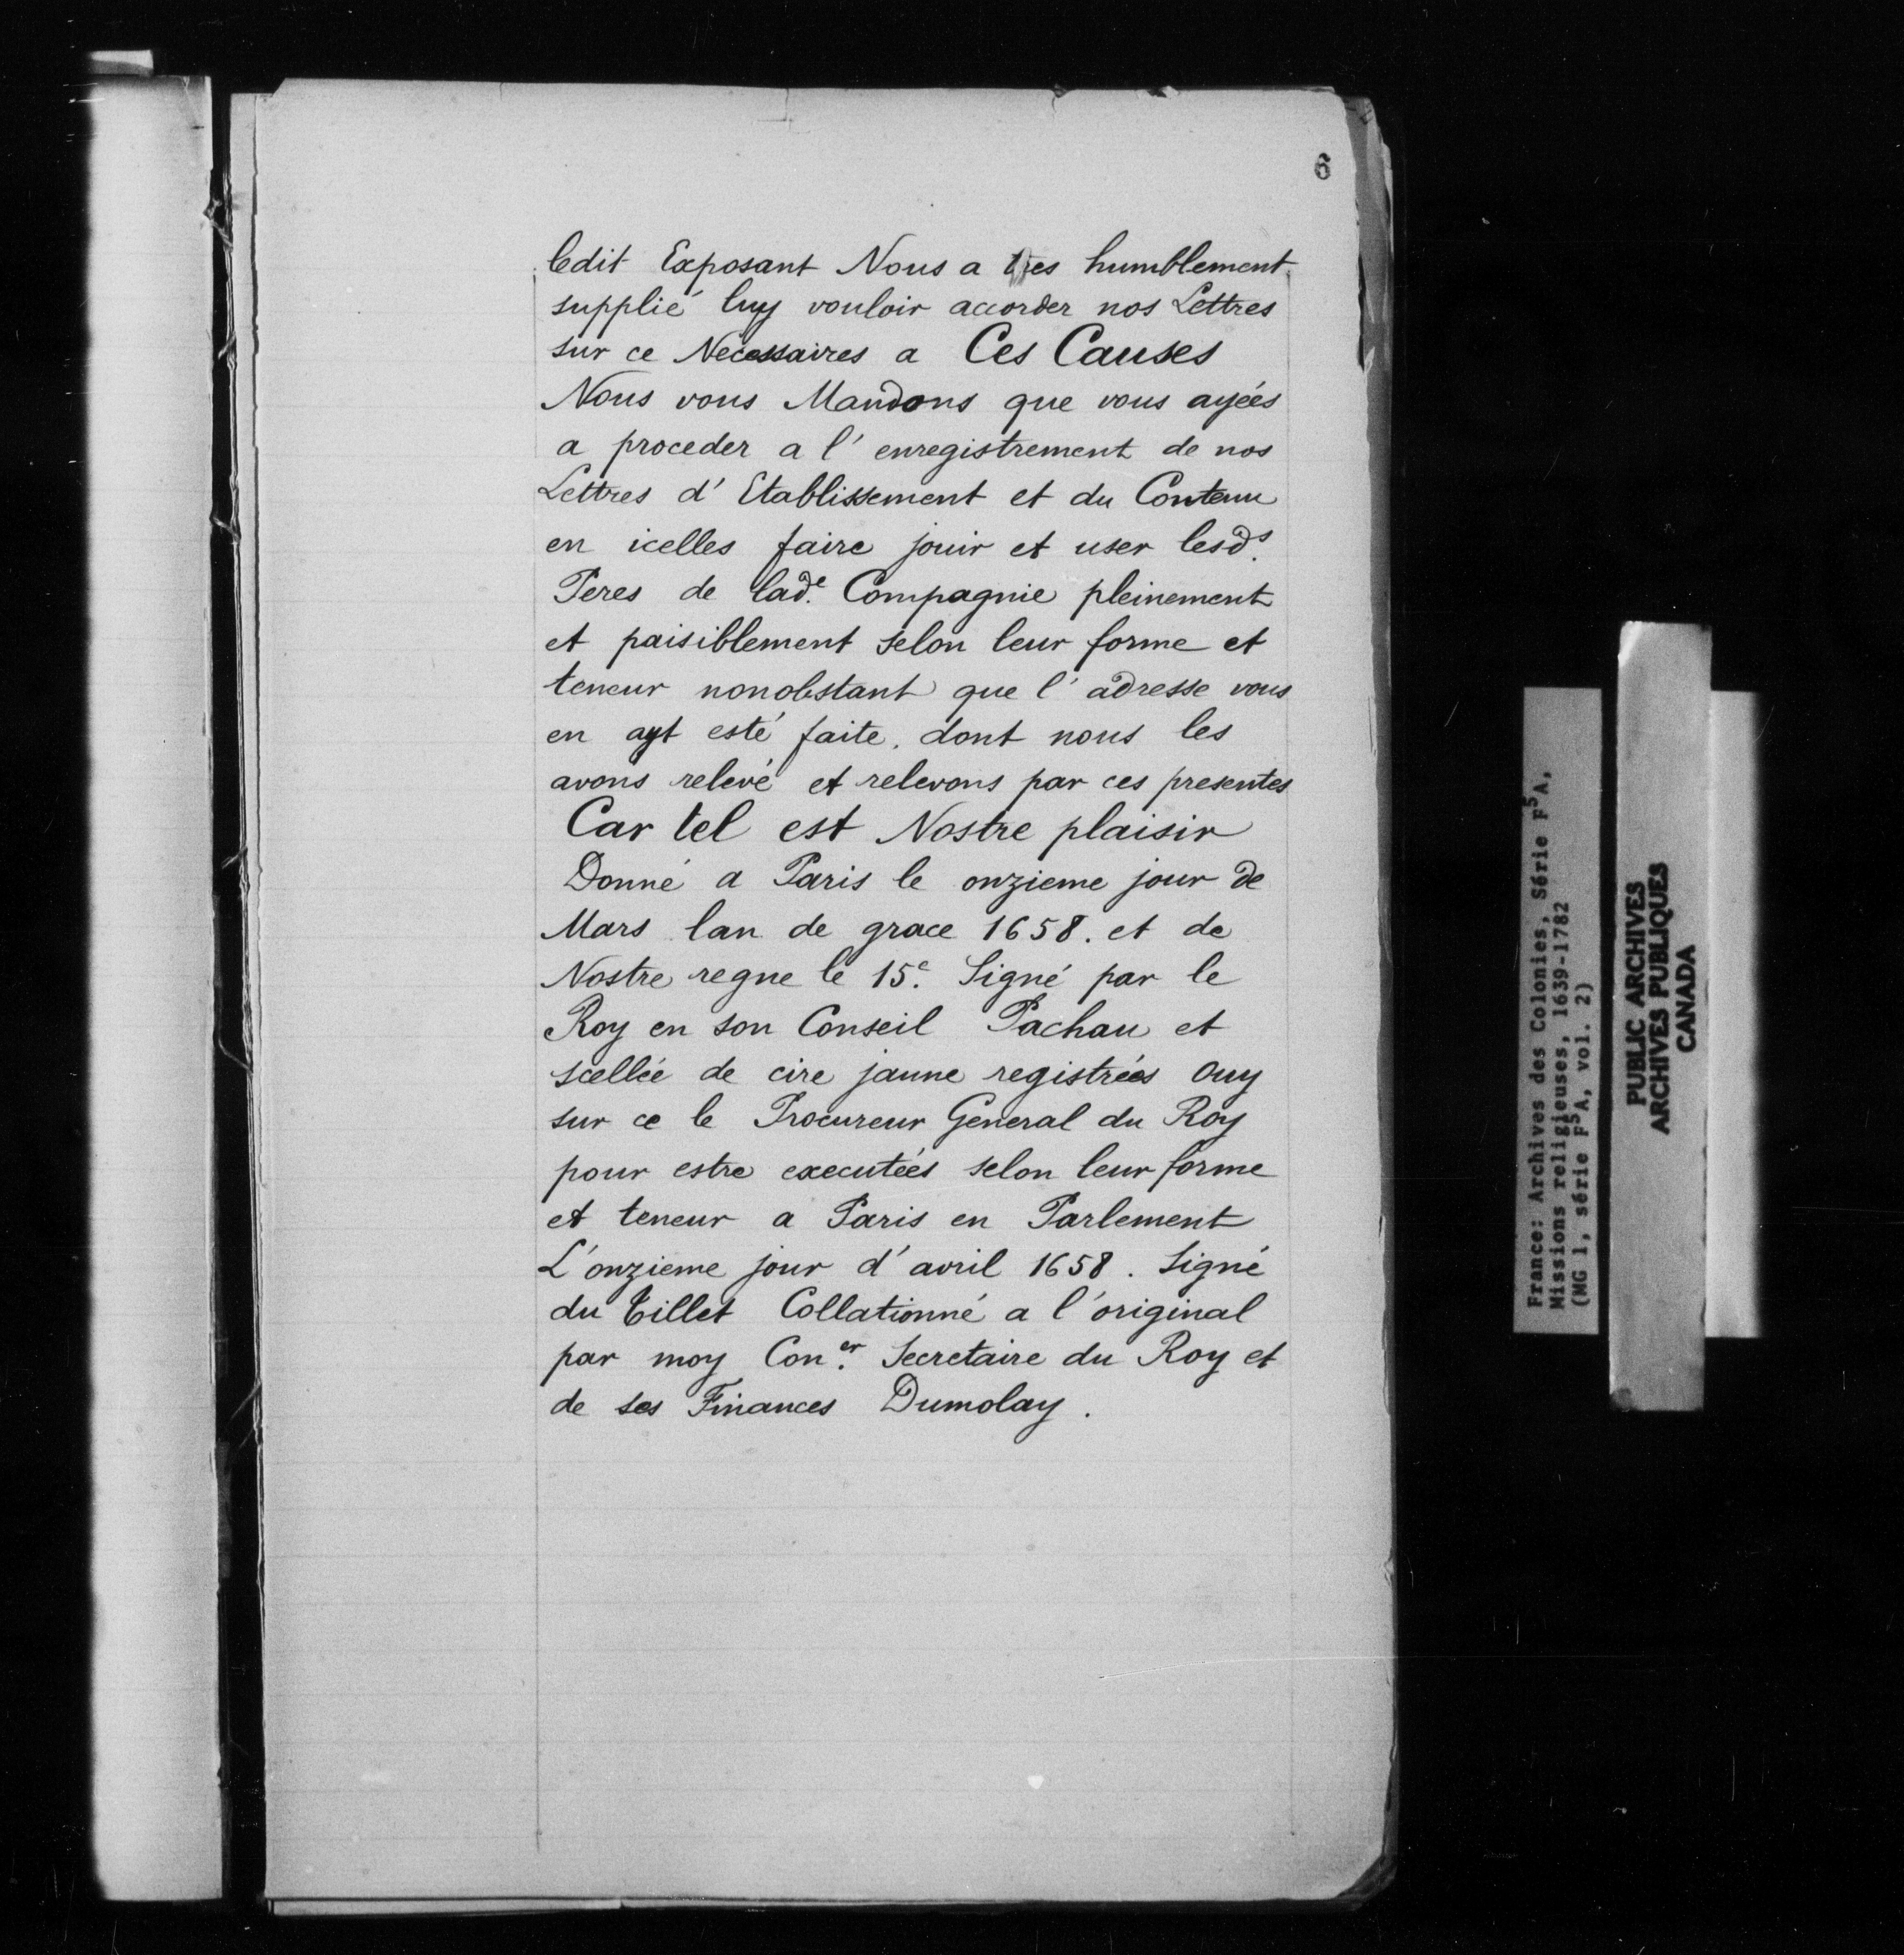 6
ledit Exposant Nous a tres humblement
supplié luy vouloir accorder nos Lettres
sur ce Necessaires a Ces Causes
Nous vous Mandons que vous ayées
a proceder a l' enregistrement de nos
Lettres d' Etablissement et du Contenu
en icelles faire jouir et user lesd.s
Peres de lad.e Compagnie pleinement
et paisiblement selon leur forme et
teneur nonobstant que l' adresse vous
en ayt esté faite, dont nous les
avons relevé et relevons par ces presentes
Car tel est Nostre plaisir
Donné a Paris le onzieme jour de
Mars lan de grace 1658. et de
Nostre regne le 15.e Signé par le
Roy en son Conseil Pachau et
scellée de cire jaune registrées Ouy
sur ce le Procureur General du Roy
pour estre executées selon leur forme
et teneur a Paris en Parlement
L'onzieme jour d' avril 1658. Signé
du Tillet Collationné a l'original
par moy Con.er Secretaire du Roy et
de ses Finances Dumolay.
France: Archives des Colonies, Série F5A,
Missions religieuses, 1639-1782
(MG 1, série F5A, vol. 2)
PUBLIC ARCHIVES
ARCHIVES PUBLIQUES
CANADA